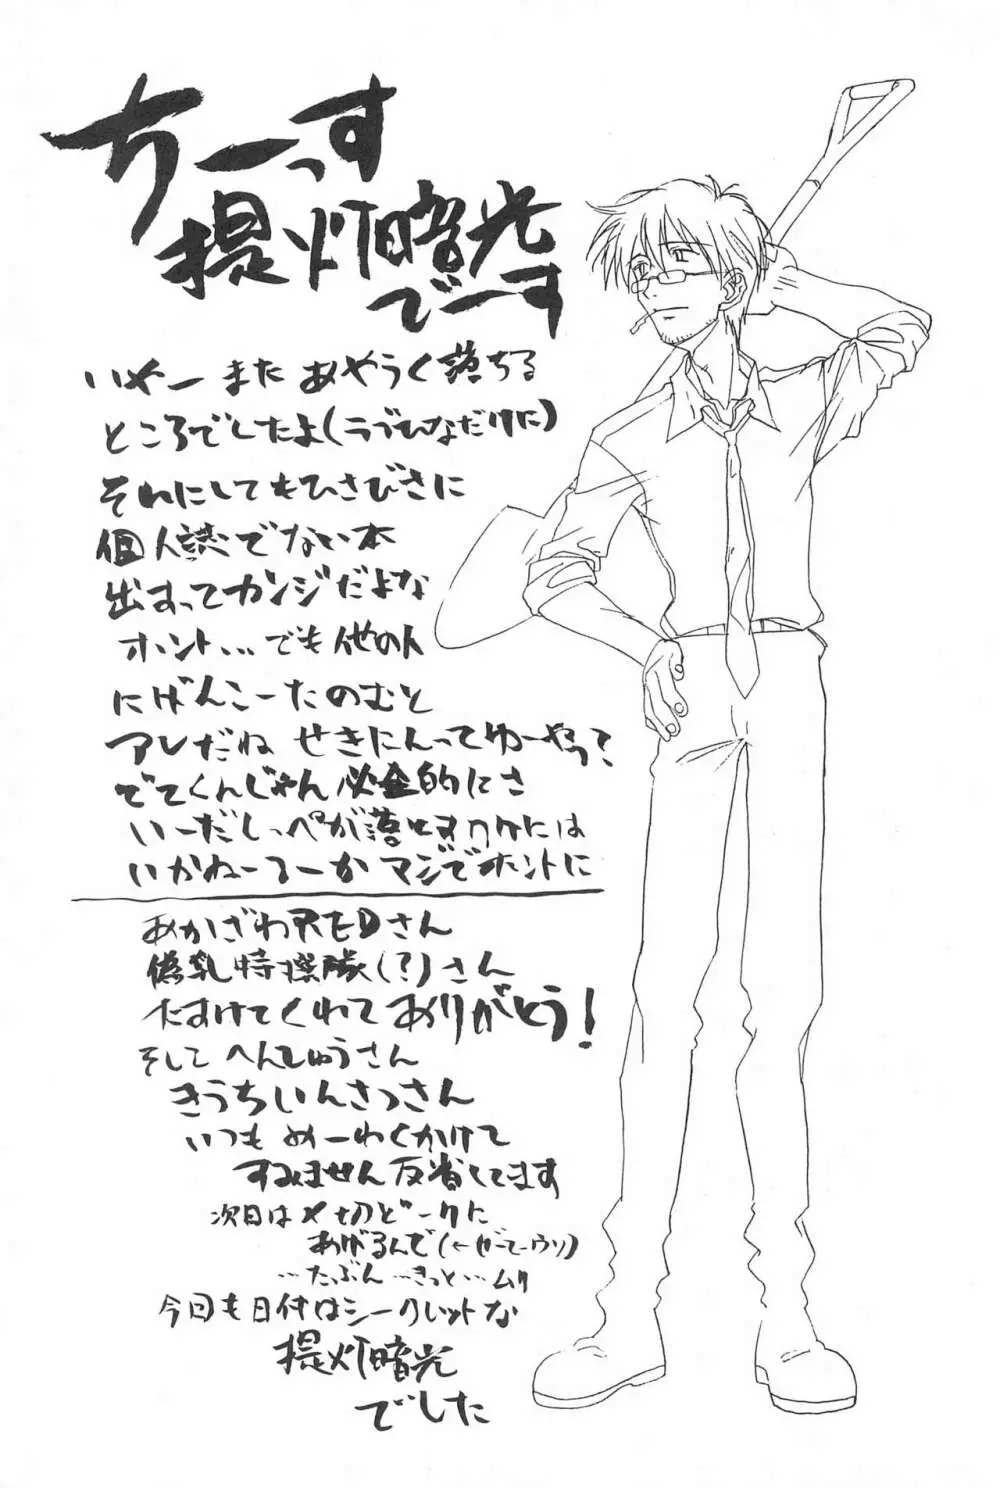 ちーっす
提灯暗光
でーす
いやー またあやうく落ちる
ところでしたよ(ラブひなだけに)
それにしてもひさびさに
個人誌でない本
出すってカンジだよな
ホント…でも他の人
にげんこーたのむと
アレだね せきにんってゆーやつ?
でてくんじゃん必金的にさ
いーだしっぺが落とすワケには
いかねーっーかマジでホントに
あかざわREDさん
偽乳特捜隊(?)さん
たすけてくれてありがとう!
そして へんしゅうさん
きうちいんさつさん
いつも めーわくかけて
すみません反省してます
次回は〆切どーりに
あげるんで(←ぜってーウソ)
…たぶん…きっと…ムリ
今回も日付はシークレットな
提灯暗光
でした